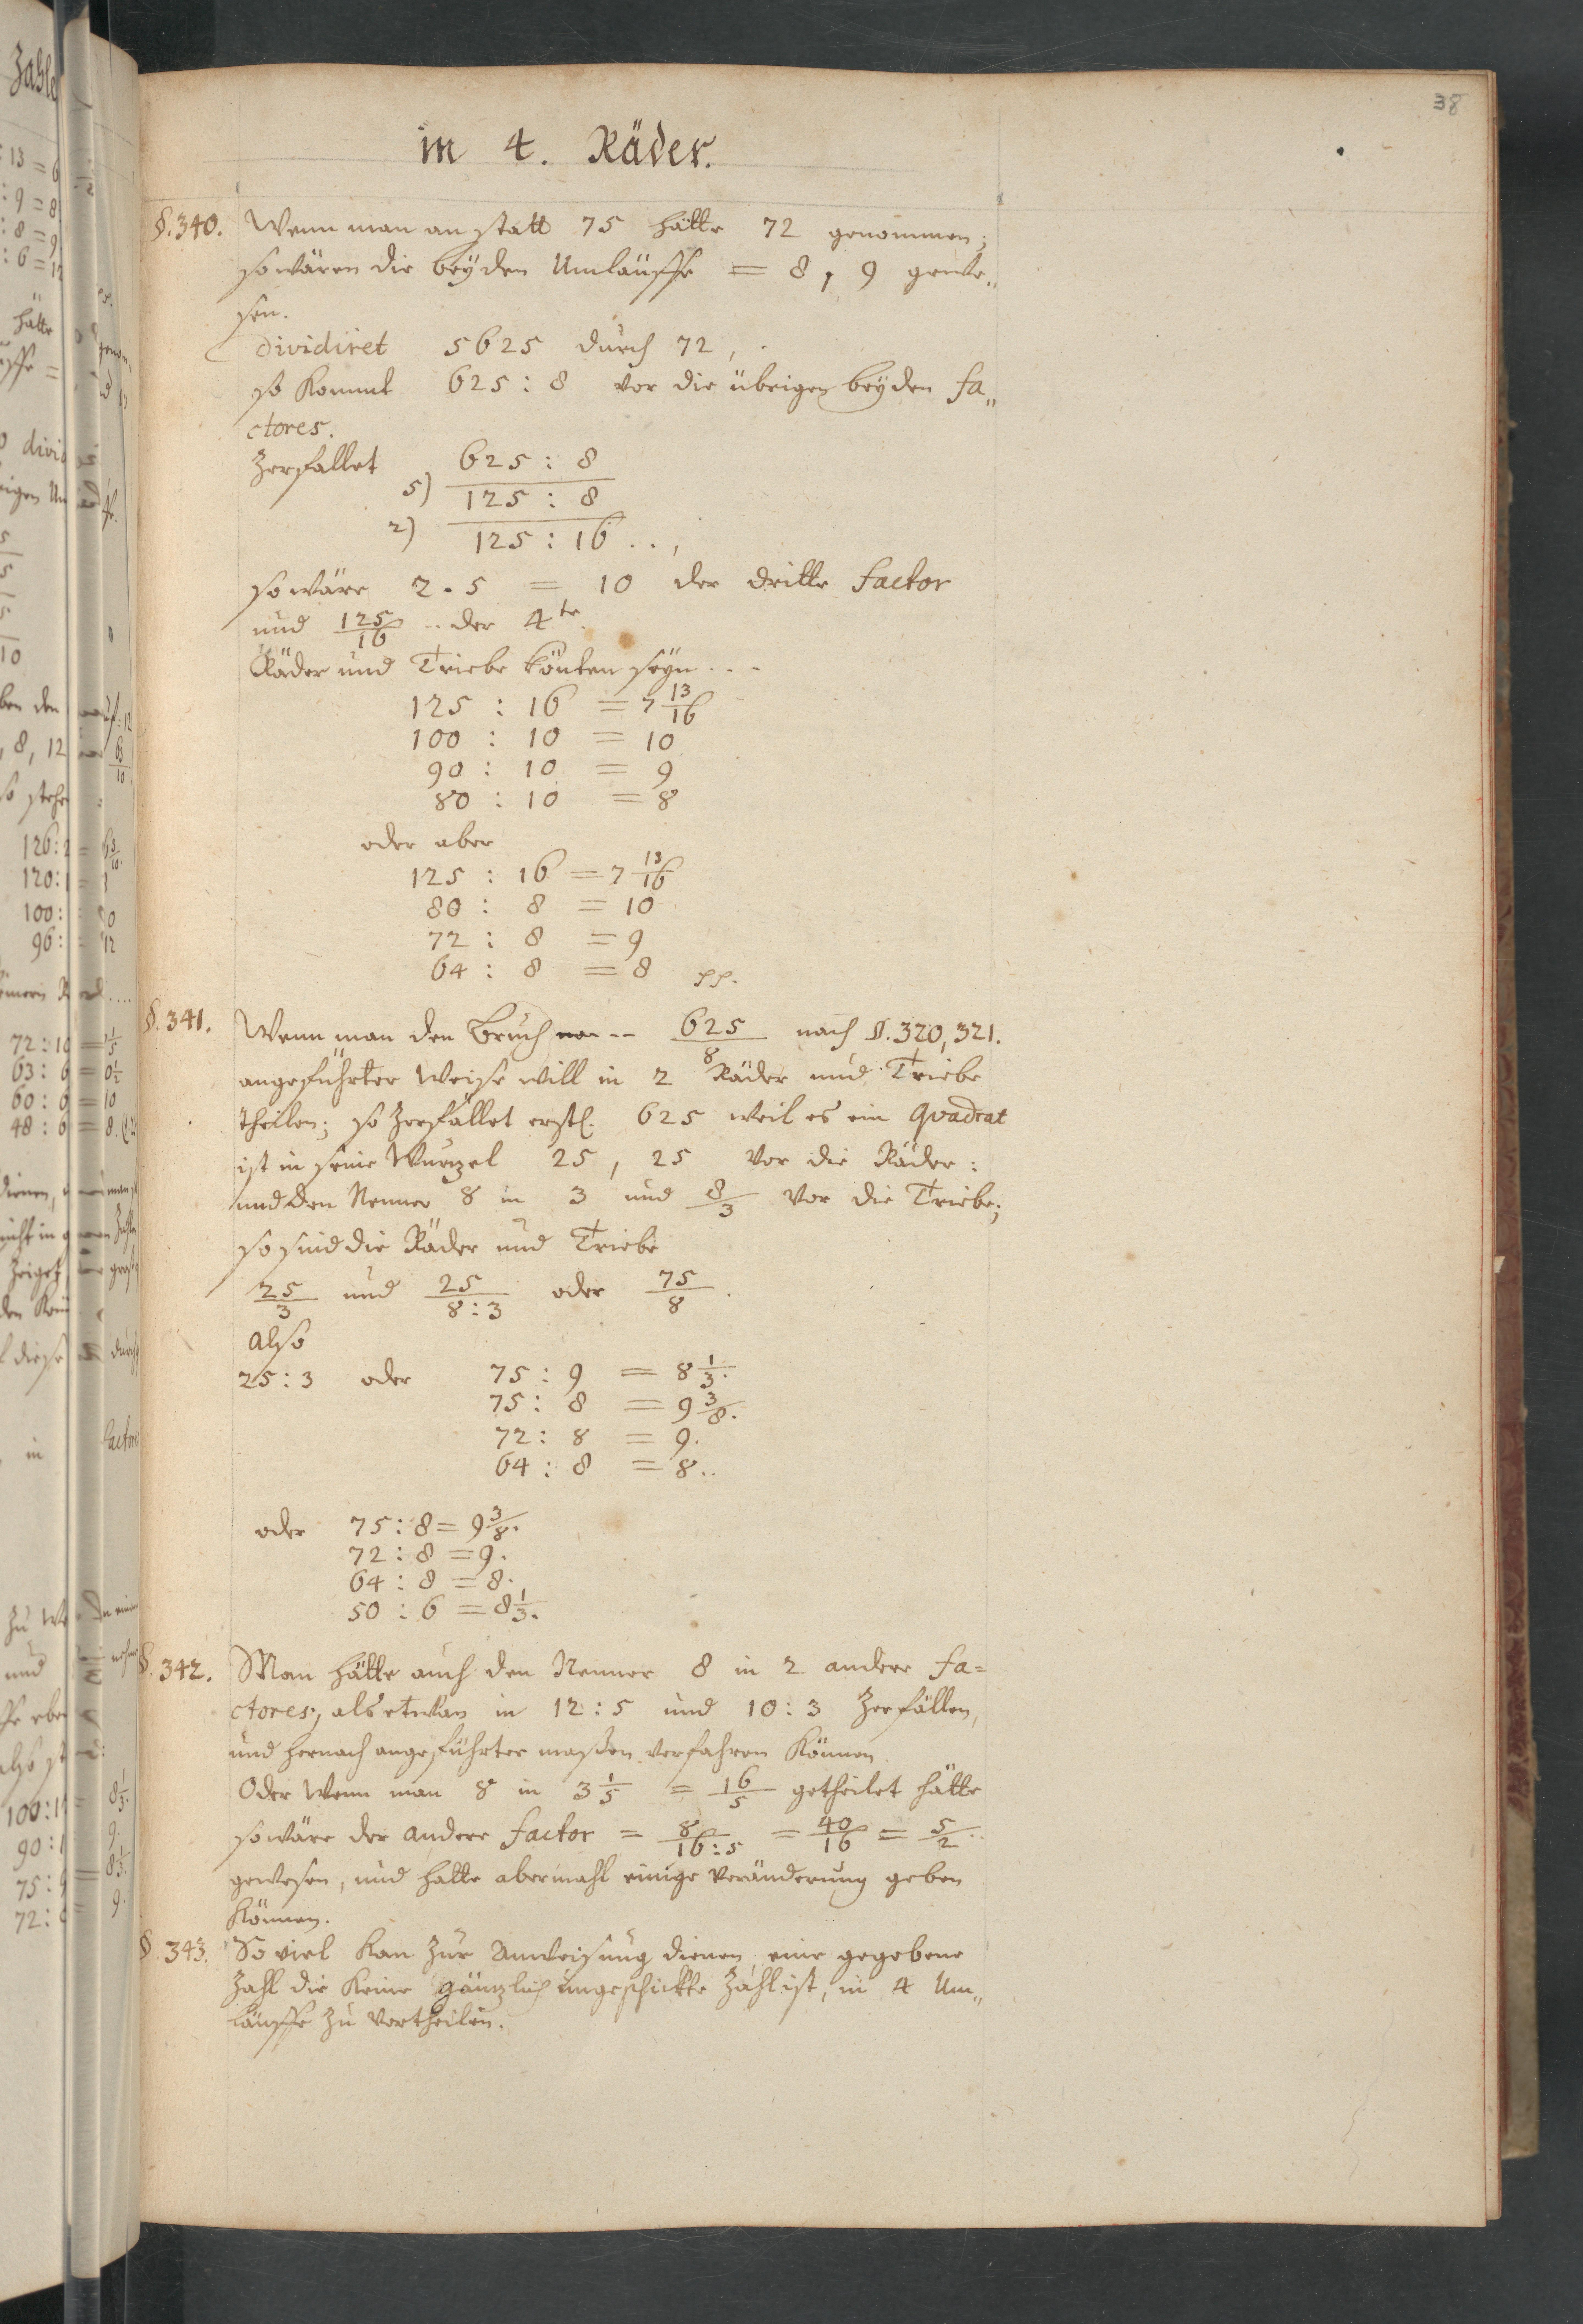 38
in 4. Räder.
§. 340. Wenn man an statt 75 hätte 72 genommen;
so wären die beyden Umläuffe = 8, 9 gewe„
sen.
dividiret 5625 durch 72,
so kommt 625 : 8 vor die übrigen beyden fa„
ctores.
Zerfallet 625 : 8
5) 125 : 8
2) 125 : 16 . . ,
so wäre 2 . 5 = 10 der dritte factor
und 125/16 .. der 4te.
Räder und Triebe könten seyn . . .
125 : 16 = 7 13/16
100 : 10 = 10
90 : 10 = 9
80 : 10 = 8
oder aber
125 : 16 = 7 13/16
80 : 8 = 10
72 : 8 = 9
64 : 8 = 8 pp.
§. 341. Wenn man den Bruch 625/8 nach §. 320, 321.
angeführter Weise will in 2 Räder und Triebe
theilen; so zerfället erstl. 625 weil es ein Quadrat
ist in seine Wurzel 25, 25 vor die Räder:
und den Nenner 8 in 3 und 8/3 vor die Triebe;
so sind die Räder und Triebe
25/3 und 25/8:3 oder 75/8.
also
25 : 3 oder 75 : 9 = 8 1/3.
75 : 8 = 9 3/8.
72 : 8 = 9.
64 : 8 = 8..
oder 75 : 8 = 9 3/8.
72 : 8 = 9.
64 : 8 = 8.
50 : 6 = 8 1/3.
§. 342. Man hätte auch den Nenner 8 in 2 andere fa=
ctores, als etwan in 12 : 5 und 10 : 3 zerfällen,
und hernach angeführter maßen verfahren können.
Oder wenn man 8 in 3 1/5 = 16/5 getheilet hätte
so wäre der andere factor = 8/16:5 = 40/16 = 5/2..
gewesen, und hatte abermahl einige Veränderung geben
können.
§. 343. So viel kan zur Anweisung dienen, eine gegebene
Zahl die keine gänzlich ungeschickte Zahl ist, in 4 Um„
läuffe zu vertheilen.